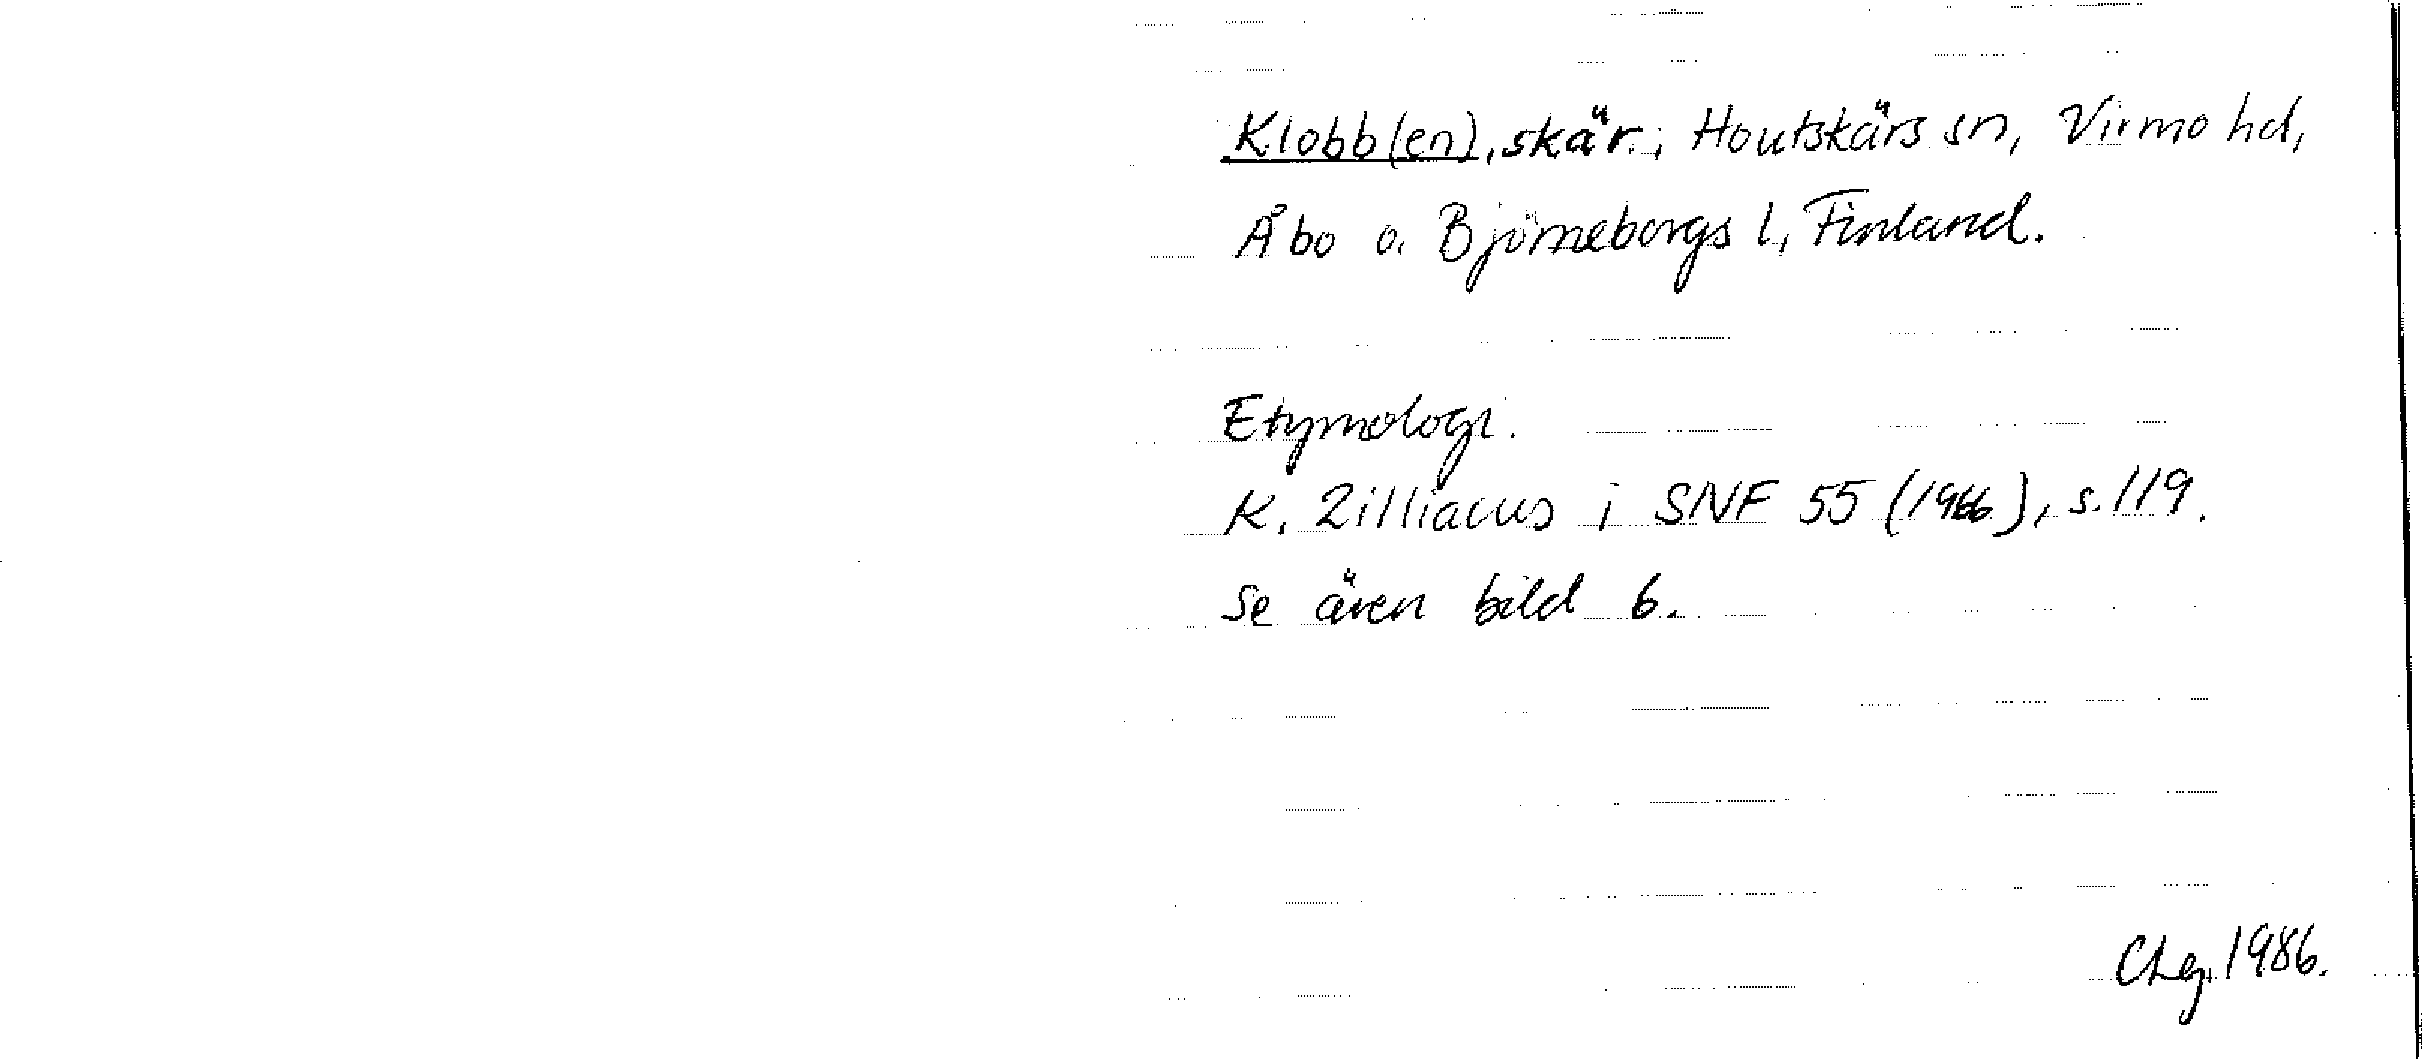 Klobb(en), skär, Houtskärs sn, Virmo hd,
Åbo o. Björneborgs l, Finland.
Etymologi.
K. Zilliacus i SNF 55 (1966), s. 119.
Se även bild 6.
Chg. 1986.